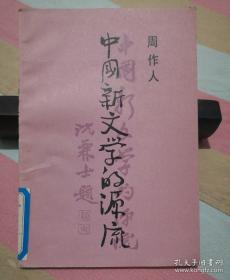 周作人
中國新文学的源流
沈兼士題